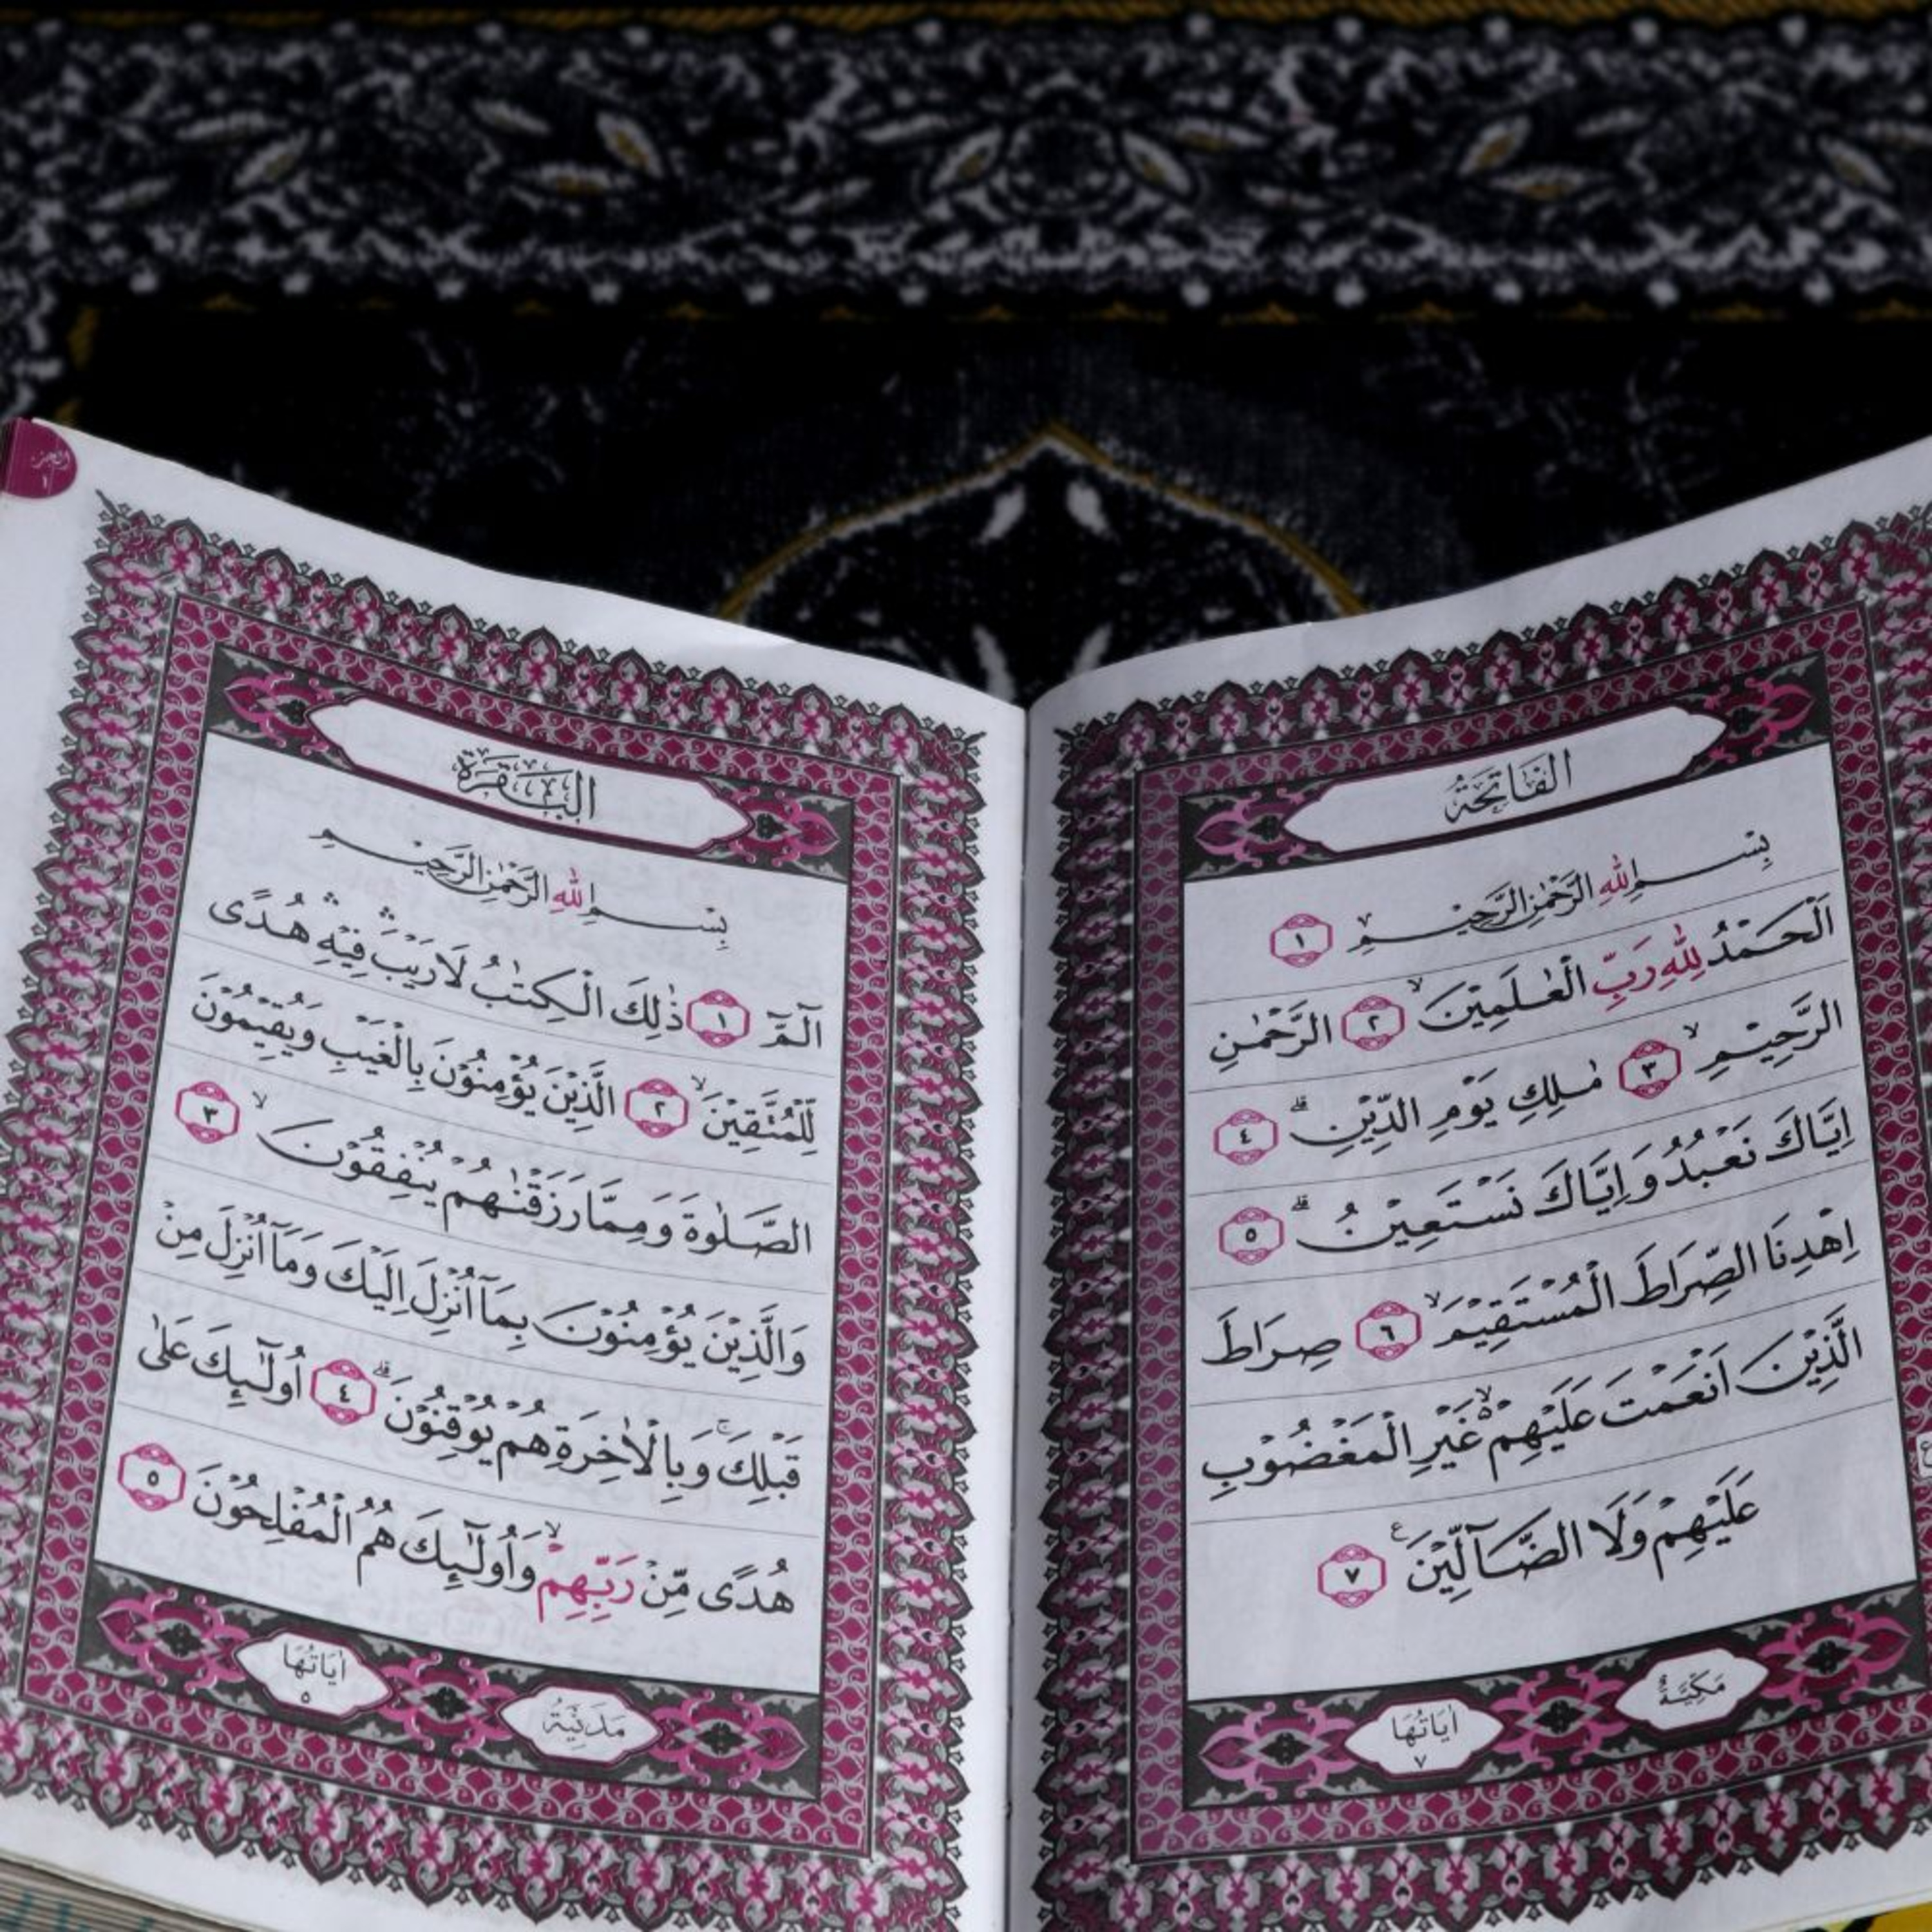 الفَاتِحَةُ
بِسْمِ اللهِ الرَّحْمٰنِ الرَّحِيْمِ ١
اَلْحَمْدُ لِلّٰهِ رَبِّ الْعٰلَمِيْنَۙ ٢ الرَّحْمٰنِ
الرَّحِيْمِۙ ٣ مٰلِكِ يَوْمِ الدِّيْنِۗ ٤
اِيَّاكَ نَعْبُدُ وَاِيَّاكَ نَسْتَعِيْنُۗ ٥
اِهْدِنَا الصِّرَاطَ الْمُسْتَقِيْمَۙ ٦ صِرَاطَ
الَّذِيْنَ اَنْعَمْتَ عَلَيْهِمْ ەۙ غَيْرِ الْمَغْضُوْبِ
عَلَيْهِمْ وَلَا الضَّاۤلِّيْنَࣖ ٧
مَكِّيَّةٌ
اٰيَاتُهَا
٧
ع
الجزء
١
البَقَرَة
بِسْمِ اللهِ الرَّحْمٰنِ الرَّحِيْمِ
الۤمّۤ ١ ذٰلِكَ الْكِتٰبُ لَا رَيْبَۛ فِيْهِۛ هُدًى
لِّلْمُتَّقِيْنَۙ ٢ الَّذِيْنَ يُؤْمِنُوْنَ بِالْغَيْبِ وَيُقِيْمُوْنَ
الصَّلٰوةَ وَمِمَّا رَزَقْنٰهُمْ يُنْفِقُوْنَۙ ٣
وَالَّذِيْنَ يُؤْمِنُوْنَ بِمَآ اُنْزِلَ اِلَيْكَ وَمَآ اُنْزِلَ مِنْ
قَبْلِكَۚ وَبِالْاٰخِرَةِ هُمْ يُوْقِنُوْنَۗ ٤ اُولٰۤىِٕكَ عَلٰى
هُدًى مِّنْ رَّبِّهِمْۙ وَاُولٰۤىِٕكَ هُمُ الْمُفْلِحُوْنَ ٥
مَدَنِيَّةٌ
اٰيَاتُهَا
٥